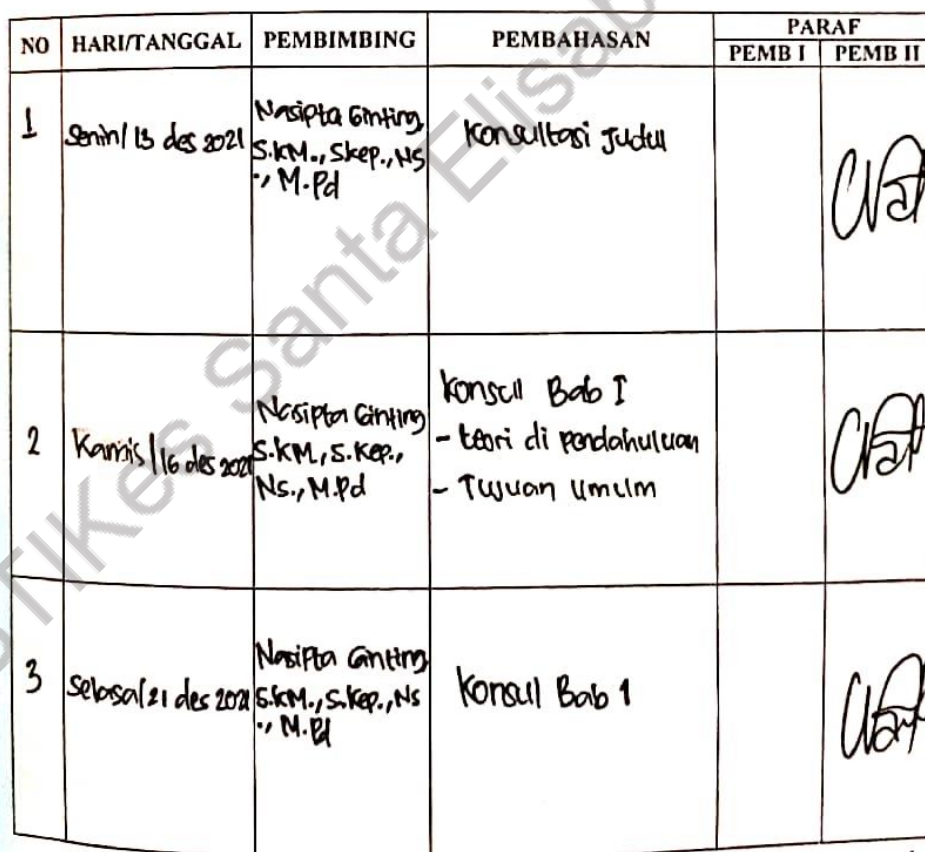 NO HARI/TANGGAL PEMBIMBING PEMBAHASAN PARAF
PEMB I PEMB II
1 Senin/ 13 des 2021 Nasipta Ginting, S.KM., Skep., Ns ., M.Pd Konsultasi Judul
2 Kamis/16 des 2021 Nasipta Ginting S.KM, S.Kep., Ns., M.Pd Konsul Bab I
- teori di pendahuluan
- Tujuan Umum
3 Selasa/21 des 2021 Nasipta Ginting S.KM., S.Kep., Ns ., M.Pd Konsul Bab 1
STIKes Santa Elisab